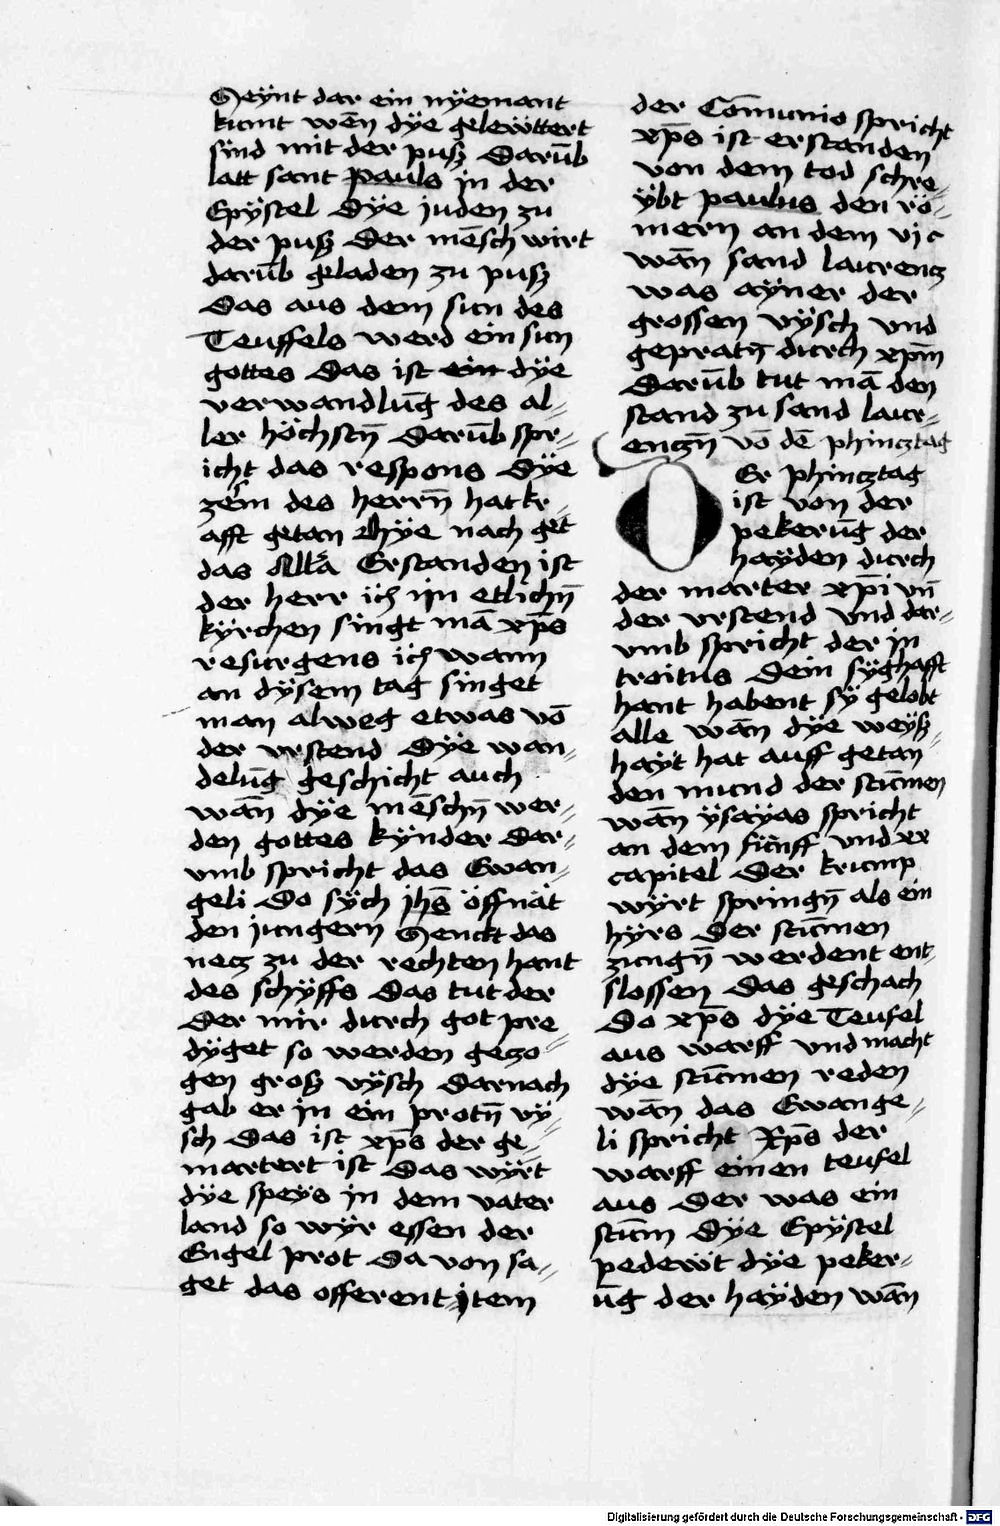 Seynt dar ein nÿemant
kumt wēn dÿe gelewttert
sind mit der pusz Darūb
latt sant pauls in der
Epÿstel Dÿe juden zu
der pusz Der mēsch wirt
darūb geladen zu pusz
Das aus dem sun des
Teuffels werd ein sun
gottes Das ist ein dÿe
verwandlūg des al⸗
ler höchstn̄ Darūb spr⸗
icht das respons Dÿe
zesm des herrn̄ hat kr⸗
afft getan Rhÿe nach get
das Alla Erstanden ist
der herr ich ÿn etlichn̄
kÿrchen singt mā xp̄s
resurgens ich wann
an dÿsem tag singet
man alweg etwas vō
der vrstend Dÿe wan⸗
delūg geschicht auch
wān dÿe mēschn̄ wer⸗
den gottes kÿnder Dar⸗
vmb spricht das Ewan⸗
geli Do sÿch jhs̄ öffnät
den jungern Senckt das
necz zu der rechten hant
des schÿffs Das tut der
Der mir durch got pre⸗
dÿget so werden gezo⸗
gen grosz vÿsch Darnach
gab er in ein protn̄ vÿ⸗
sch Das ist xp̄s der ge⸗
martert ist Das wÿrt
dÿe speÿs in dem vater
land so wÿr essen der
Engel prot Da von sa⸗
get das offerent jtem
der Cōmunio spricht
xp̄s ist erstanden
von dem tod schre⸗
ÿbt paulus den rö⸗
mern an dem vj c
wān sand laurencz
was aÿner der
grossen vÿsch vnd
gepratn̄ durch xpm̄
Darūb tut mā den
stand zu sand laur⸗
enczn̄ vō dē phincztag
DEr phincztag
ist von der
pekerūg der
haÿden durch
der marter xp̄i vn̄
der vrstend vnd dar⸗
vmb spricht der jn
troitus Dein sÿghafft
hant habent sÿ gelobt
alle wān dÿe weÿsz⸗
haÿt hat auff getan
den mund der stūmen
wān ÿsaÿas spricht
an dem fünff vnd xx
capitel Der krump
wÿrt springn̄ als ein
hÿrs Der stūmen
zungn̄ werdent ent⸗
slossen Das geschach
Do xp̄s dÿe Teufel
aus warff vnd macht
dÿe stūmen reden
wān das Ewange⸗
li spricht Xp̄s der
warff einen teufel
aus Der was ein
stūm Dÿe Epÿstel
pedewt dÿe peker⸗
ūg der haÿden wān
Digitalisierung gefördert durch die Deutsche Forschungsgemeinschaft - DFG